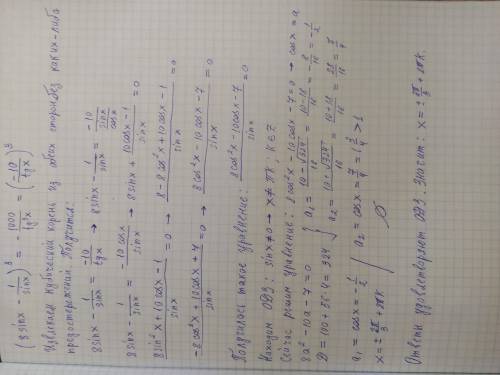 (8sinx - 1/sinx)³ = - 1000/tg³x = (-10/tgx)³
Извлекаем кубический корень из обеих сторон без каких-либо
предостережений. Получится:
8sinx - 1/sinx = -10/tgx → 8sinx - 1/sinx = -10/(sinx/cosx)
8sinx - 1/sinx = -10cosx/sinx → 8sinx + (10cosx - 1)/sinx = 0
(8sin²x + 10cosx - 1)/sinx = 0 → (8 - 8cos²x + 10cosx - 1)/sinx = 0
(-8cos²x + 10cosx + 7)/sinx = 0 → (8cos²x - 10cosx - 7)/sinx = 0
Получилось такое уравнение: (8cos²x - 10cosx - 7)/sinx = 0
Находим ОДЗ: sinx ≠ 0 → x ≠ πk; k ∈ Z
Сейчас решим уравнение: 8cos²x - 10cosx - 7 = 0 → cosx = a
8a² - 10a - 7 = 0
D = 100 + 56·4 = 324
{ a₁ = (10 - √324)/16 = (10 - 18)/16 = -8/16 = -1/2
a₂ = (10 + √324)/16 = (10 + 18)/16 = 28/16 = 7/4
a₁ = cosx = -1/2 | a₂ = cosx = 7/4 = 1 3/4 > 1
x = ± 2π/3 + 2πk | ∅
Ответы удовлетворяет ОДЗ. Значит: x = ± 2π/3 + 2πk.